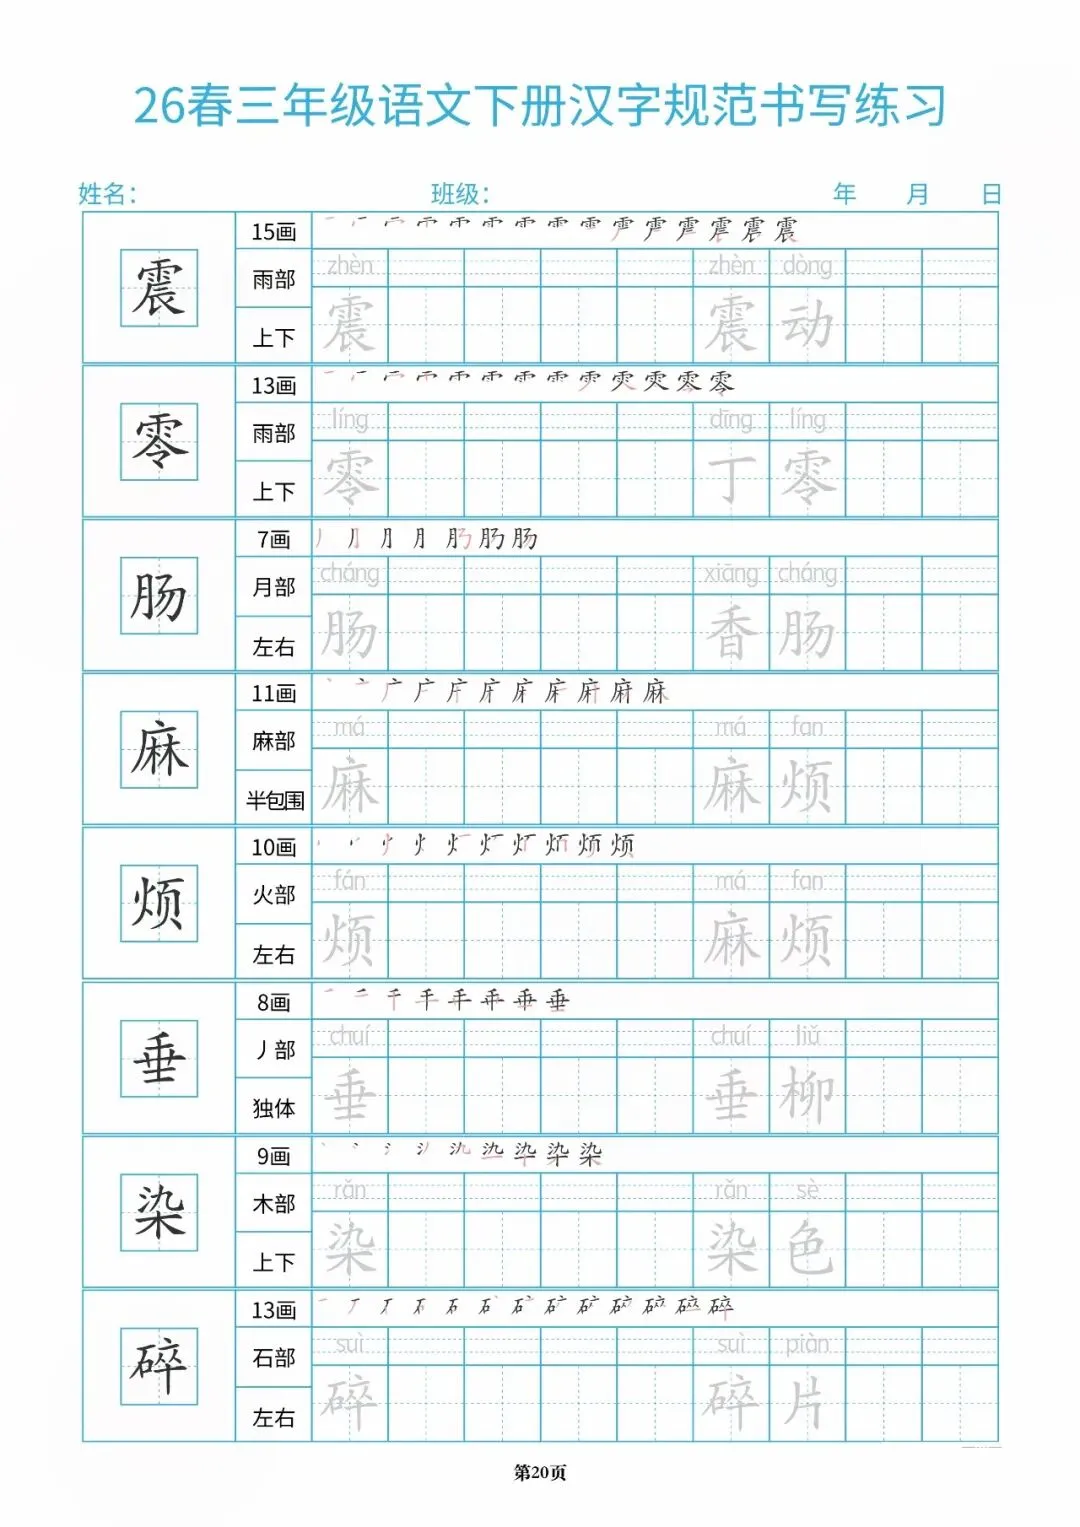 26春三年级语文下册汉字规范书写练习
姓名： 班级： 年 月 日
震 15画
雨部 zhèn zhèn dòng
上下 震 震 动
零 13画
雨部 líng dīng líng
上下 零 丁 零
肠 7画
月部 cháng xiāng cháng
左右 肠 香 肠
麻 11画
麻部 má má fan
半包围 麻 麻 烦
烦 10画
火部 fán má fan
左右 烦 麻 烦
垂 8画
丿部 chuí chuí liǔ
独体 垂 垂 柳
染 9画
木部 rǎn rǎn sè
上下 染 染 色
碎 13画
石部 suì suì piàn
左右 碎 碎 片
第20页